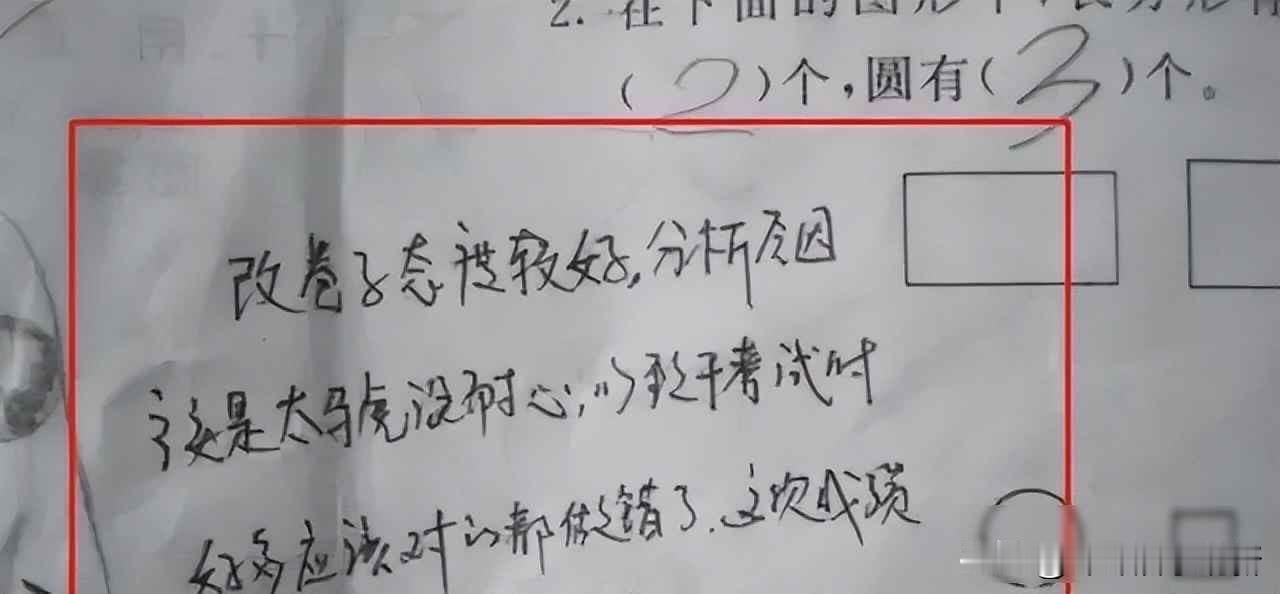 2. 在下面的图形中，长方形有
(2)个，圆有(3)个。
改卷子态度较好，分析原因
还是太马虎没耐心，以致于考试时
好多应该对的都做错了.这次成绩